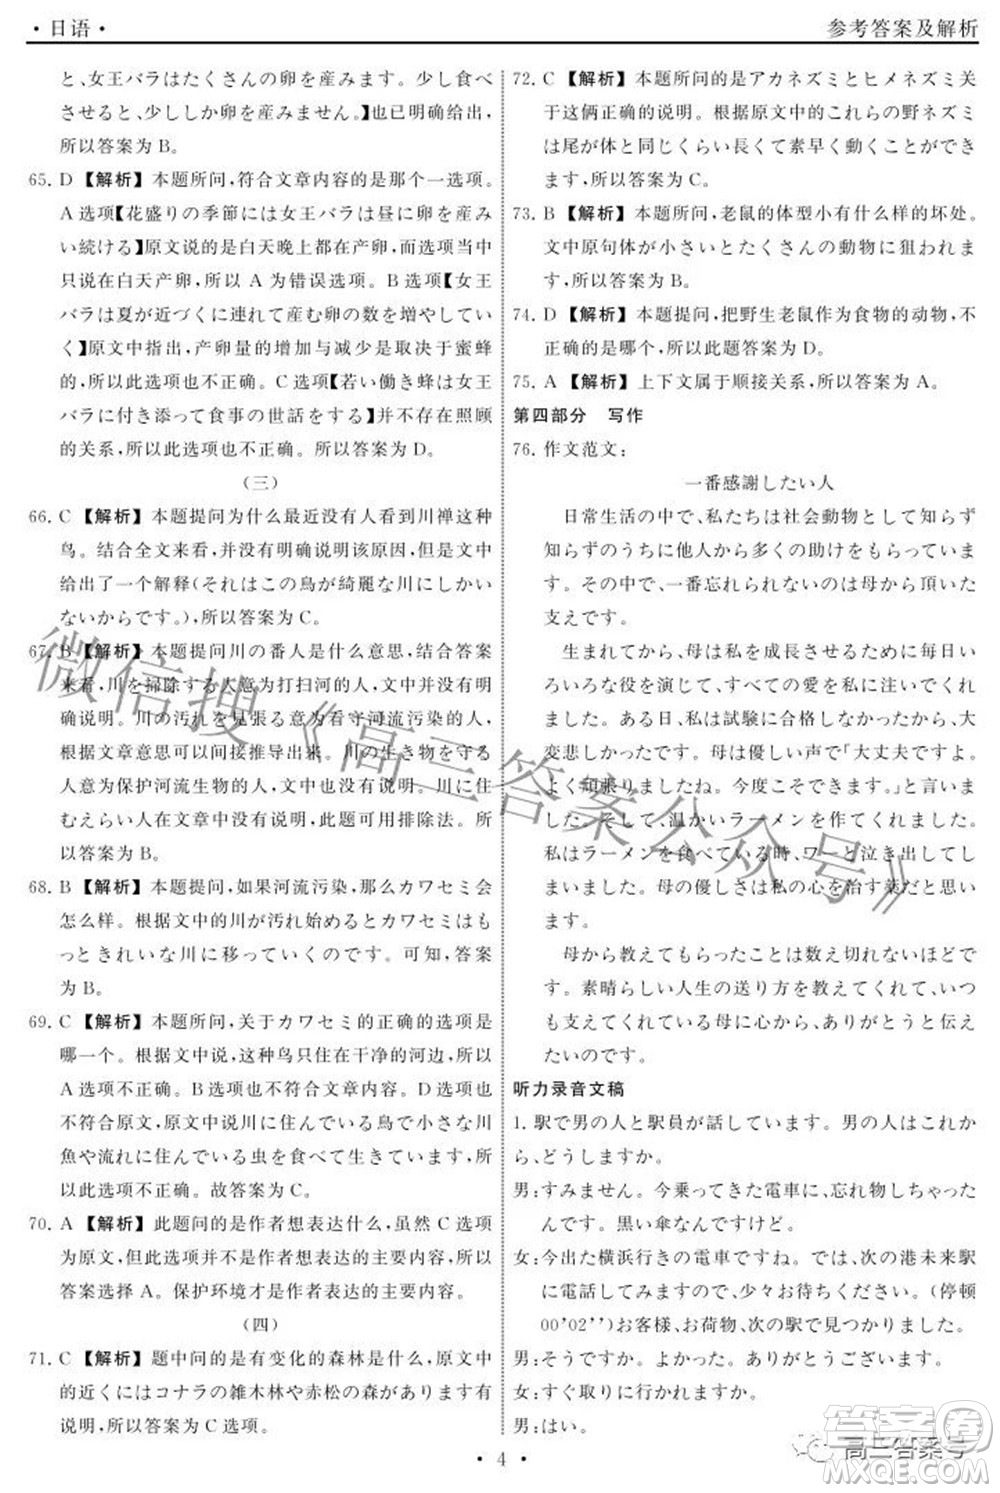 ・日语・
参考答案及解析
と、女王バラはたくさんの卵を産みます。少し食べ
させると、少ししか卵を産みません。】也已经明确，
所以答案为 B。
65. D 【解析】本题所问，符合文章内容的是那一选项。
A 选项【花盛りの季節には女王バラは昼に卵を産み
い続ける】原文说的是白天晚上都在产卵，而选项当中
只说在白天产卵，所以 A 为错误选项。B 选项【女王
バラは夏が近づくに連れて産む卵の数を増やしてい
く】原文当中，产卵量的增加与减少是掌握于蜜蜂的
手中，所以不正确。C 选项【若い働き蜂は女王
バラに付き添って食事の世話をする】不存在照顾
的关系，所以此选项也不正确。所以答案为 D。
（三）
66. C 【解析】本题提问为什么最近没有人看到川禅这种
鸟。结合全文来看，并没有明确说明该原因，但是文中
给出了一个解释（それはこの鳥が綺麗な川にしかい
ないからです。），所以答案为 C。
67. B 【解析】本题提问川の番人是什么意思，结合答案
来看，川を掃除する人意为打扫河的人，文中并没有
说明。川の汚れを見張る意为看守河流污染的人，
根据文章意思可以间接推导出来。川の生き物を守る
人意为保护河流生物的人，文中没有说明。川に住
むえらい人在文章中没有说明，此题可用排除法。所
以答案为 B。
68. B 【解析】本题提问，如果河流污染，那么カワセミ会
怎么样。根据文中的川が汚れ始めるとカワセミはも
っときれいな川に移っていくのです。可知，答案
为 B。
69. C 【解析】本题所问，关于カワセミ的正确的选项是
哪一个。根据文中说，这种鸟只存在于干净的河边，所以
A 选项不正确。B 选项也不符合文章内容。D 选项也
不正确，原文中说川に住んでいる鳥でも小さな川
魚や流れに住んでいる虫を食べて生きています。因
此此选项不正确。故答案为 C。
70. A 【解析】此题问的是作者想表达什么，虽然 C 选项
为原文，但是并不是作者想表达的主要内容，所以
答案选择 A。保护环境才是作者想表达的主要内容。
（四）
71. C 【解析】题中问的是有变化的森林是什么，原文中
的近くにはコナラの雑木林や赤松の森があります有
说明，所以答案为 C 选项。
72. C 【解析】本题所问的是アカネズミとヒメネズミ关
于这俩正确的说明。根据原文中的これらの野ネズミ
は尾が体と同じくらい長くて素早く動くことができ
ます。所以答案为 C。
73. B 【解析】本题所问，老鼠的体型小有什么样的坏处。
文中原句体が小さいとたくさんの動物に狙われます。
所以答案为 B。
74. D 【解析】本题提问，把野生老鼠作为食物的动物，不
正确的是哪个，所以此题答案为 D。
75. A 【解析】上下文属于顺接关系，所以答案为 A。
第四部分　写作
76. 作文范文：
一番感謝したい人
日常生活の中で、私たちは社会動物として知らず
知らずのうちに他人から多くの助けをもらっていま
す。その中で、一番忘れられないのは母から頂いた
支えです。
生まれてから、母は私を成長させるために毎日い
ろいろな役を演じて、すべての愛を私に注いでくれ
ました。ある日、私は試験に合格しなかったので、大
変悲しかったです。母は優しい声で「大丈夫ですよ。
よく頑張りましたね。今度できますよ。」と言いまし
た。そして、温かいラーメンを作ってくれました。
私はラーメンを食べている時、ワーと泣き出してし
まいました。母の優しさは私の心を治す薬だと思い
ます。
母から教えてもらったことは数え切れないほどで
す。素晴らしい人生の送り方を教えてくれて、いつ
も支えてくれている母に心から、ありがとうと伝え
たいのです。
听力录音文稿
1. 駅で男の人と駅員が話しています。男の人はこれか
ら、どうしますか。
男：すみません。今乗ってきた電車に、忘れ物しちゃった
んです。黒い傘なんですけど。
女：今出た横浜行きの電車ですね。では、次の港未来駅
に電話してみますので、少々お待ちください。（停顿
00'02''）お客様、お荷物、次の駅で見つかりました。
男：そうですか。よかった。ありがとうございます。
女：すぐ取りに行かれますか。
男：はい。
・4・
微信搜《高三答案公众号》
高三答案号
答案圈
MXQE.COM